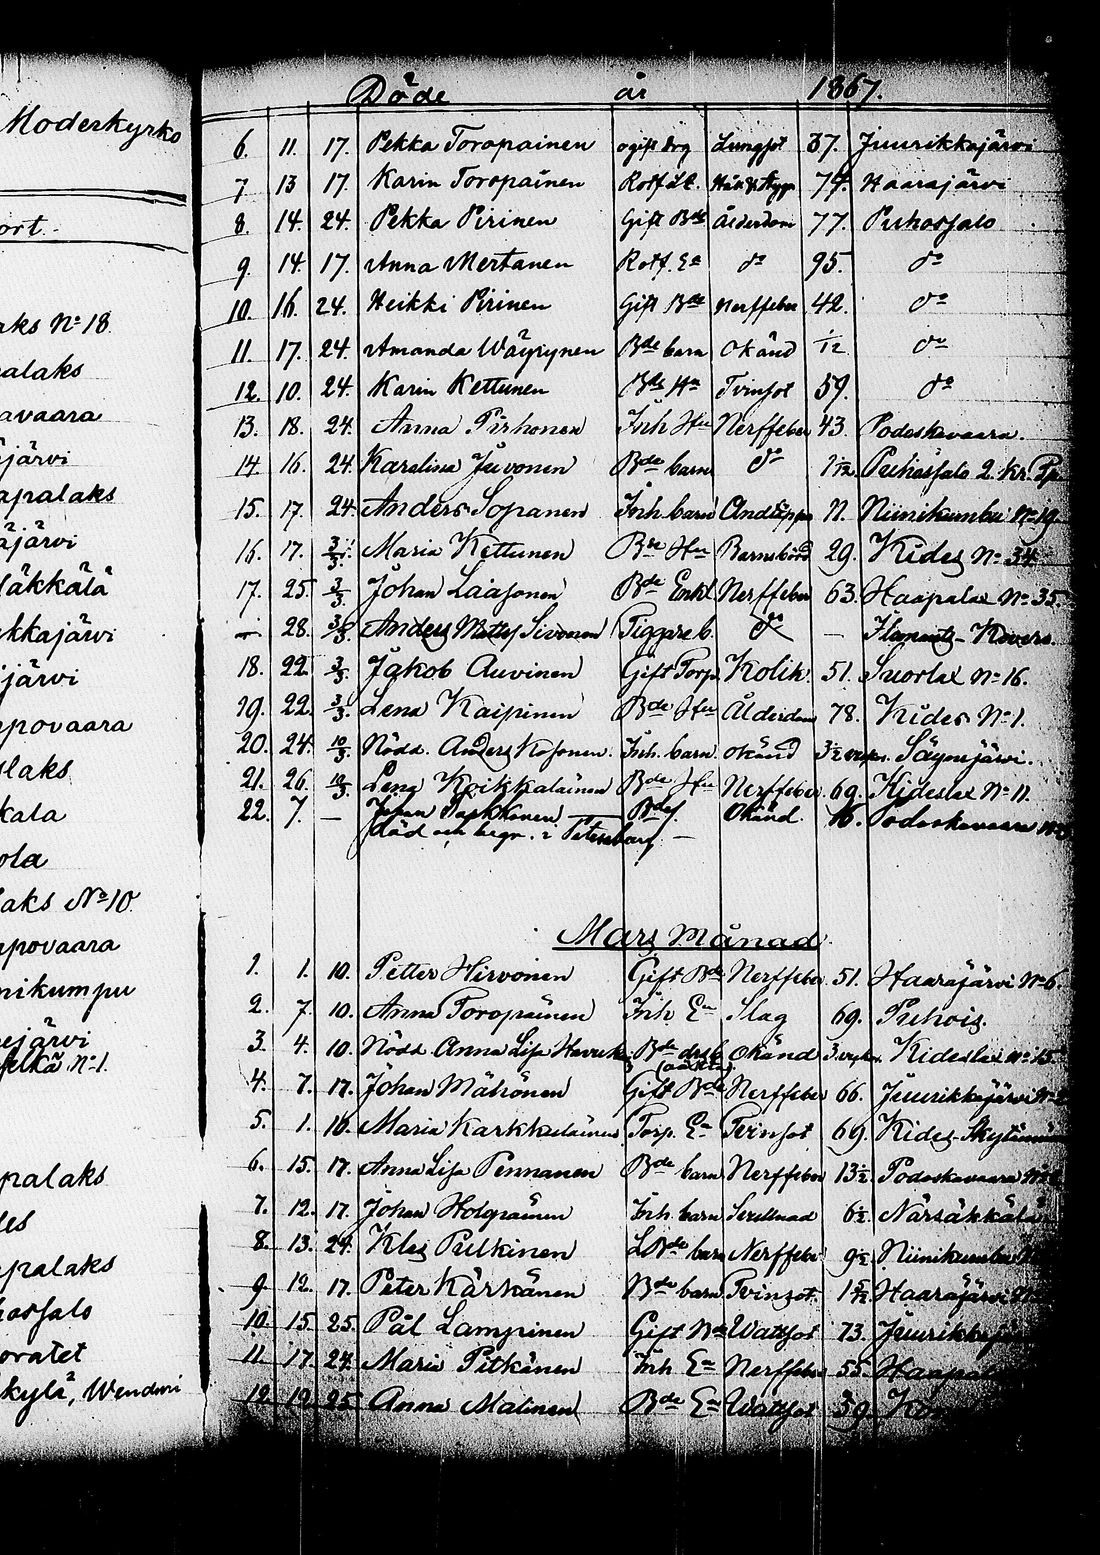 Moderkyrko
ort.
aks No 18.
palaks
avaara
järvi
apalaks
äjärvi
säkkälä
kkajärvi
järvi
ppovaara
slaks
kala
ola
laks No 10
ppovaara
nikumpu
ejärvi
selkä No 1.
palaks
des
palaks
hossalo
oratet
kylä, Wendwri
Döde år 1867.
6. 11. 17. Pekka Toropainen ogift drg Lungsot 37. Juurikkajärvi
7 13 17. Karin Toropainen 79. Haarajärvi
8. 14. 24. Pekka Pirinen Gift Bde Ålderdom 77. Puhossalo
9. 14. 17. Anna Mertanen Rotf. Ea do 95. do
10. 16. 24. Heikki Pirinen Gift Bde Nerffeber 42. do
11. 17. 24. Amanda Wäyrynen Bde barn Okänd 1/12 do
12. 10. 24. Karin Kettunen Bde Ha Tvinsot 59. do
13. 18. 24. Anna Pirhonen Inh Hu Nerffeber 43. Podoskavaara.
14. 16. 24. Karolina Juvonen Bde barn do Puhossalo 2. Kr. Tp
15. 17. 24. Anders Sopanen Inh. barn Andtäppa 11. Niinikumbu No 19
16. 17. 3/3. Maria Kettunen Bde Hu Barnsbörd 29. Kides No 34
17. 25. 3/3 Johan Laasonen Bde Enkl. Nerffeber 63. Haapalax No 35.
— 28. 3/3 Anders Mattss Sivonen Tiggare b. do — Ilomants - Kovero.
18. 22. 3/3. Jakob Auvinen Gift Torp. Kolik. 51. Suorlax No 16.
19. 22. 3/3. Lena Kaipinen Bde Hu Ålderdom 78. Kides No 1.
20. 24. 10/3. Nödd. Anders Kosonen. Inh. barn okänd 3½ Säynejärvi.
21. 26. 10/3. Lena Koikkalainen Bde Hu Nerffeber 69. Kideslax No 11.
22. 7. — Johan Paakkonen Bdes. Okänd. 16. Podoskavaara
död och begr. i Petersburg —
Mars Månad.
1. 1. 10. Petter Hirvonen Gift Bde Nerffeber 51. Haarajärvi No 6.
2. 7. 10. Anna Toropainen Inh. En Slag 69. Puhois.
3. 4. 10. Nödd. Anna Lisa Bde drsb. Okänd Kideslax No 15.
(oäkta)
4. 7. 17. Johan Mähönen Gift Bde Nerffeber 66. Juurikkajärvi
5. 1. 10. Maria Karkkulainen Torp. En Tvinsot 69. Kides
6. 15. 17. Anna Lisa Pennanen Bde barn Nerffeber 13½ Podoskavaara
7. 12. 17. Johan Holopainen Inh. barn 6½ Närsäkkälä
8. 13. 24. Klas Pulkinen LBde barn Nerffeber 9½ Niinikumbu
9 12. 17. Peter Kärkänen Bde barn Tvinsot. Haarajärvi
10. 15. 25. Pål Lampinen Gift Wattsot 73. Juurikkajä
11. 17. 24. Maria Pitkänen Inh En Nerffeber 55. Haapal
12. 19. 25. Anna Malinen Bde En Wattsot 39.